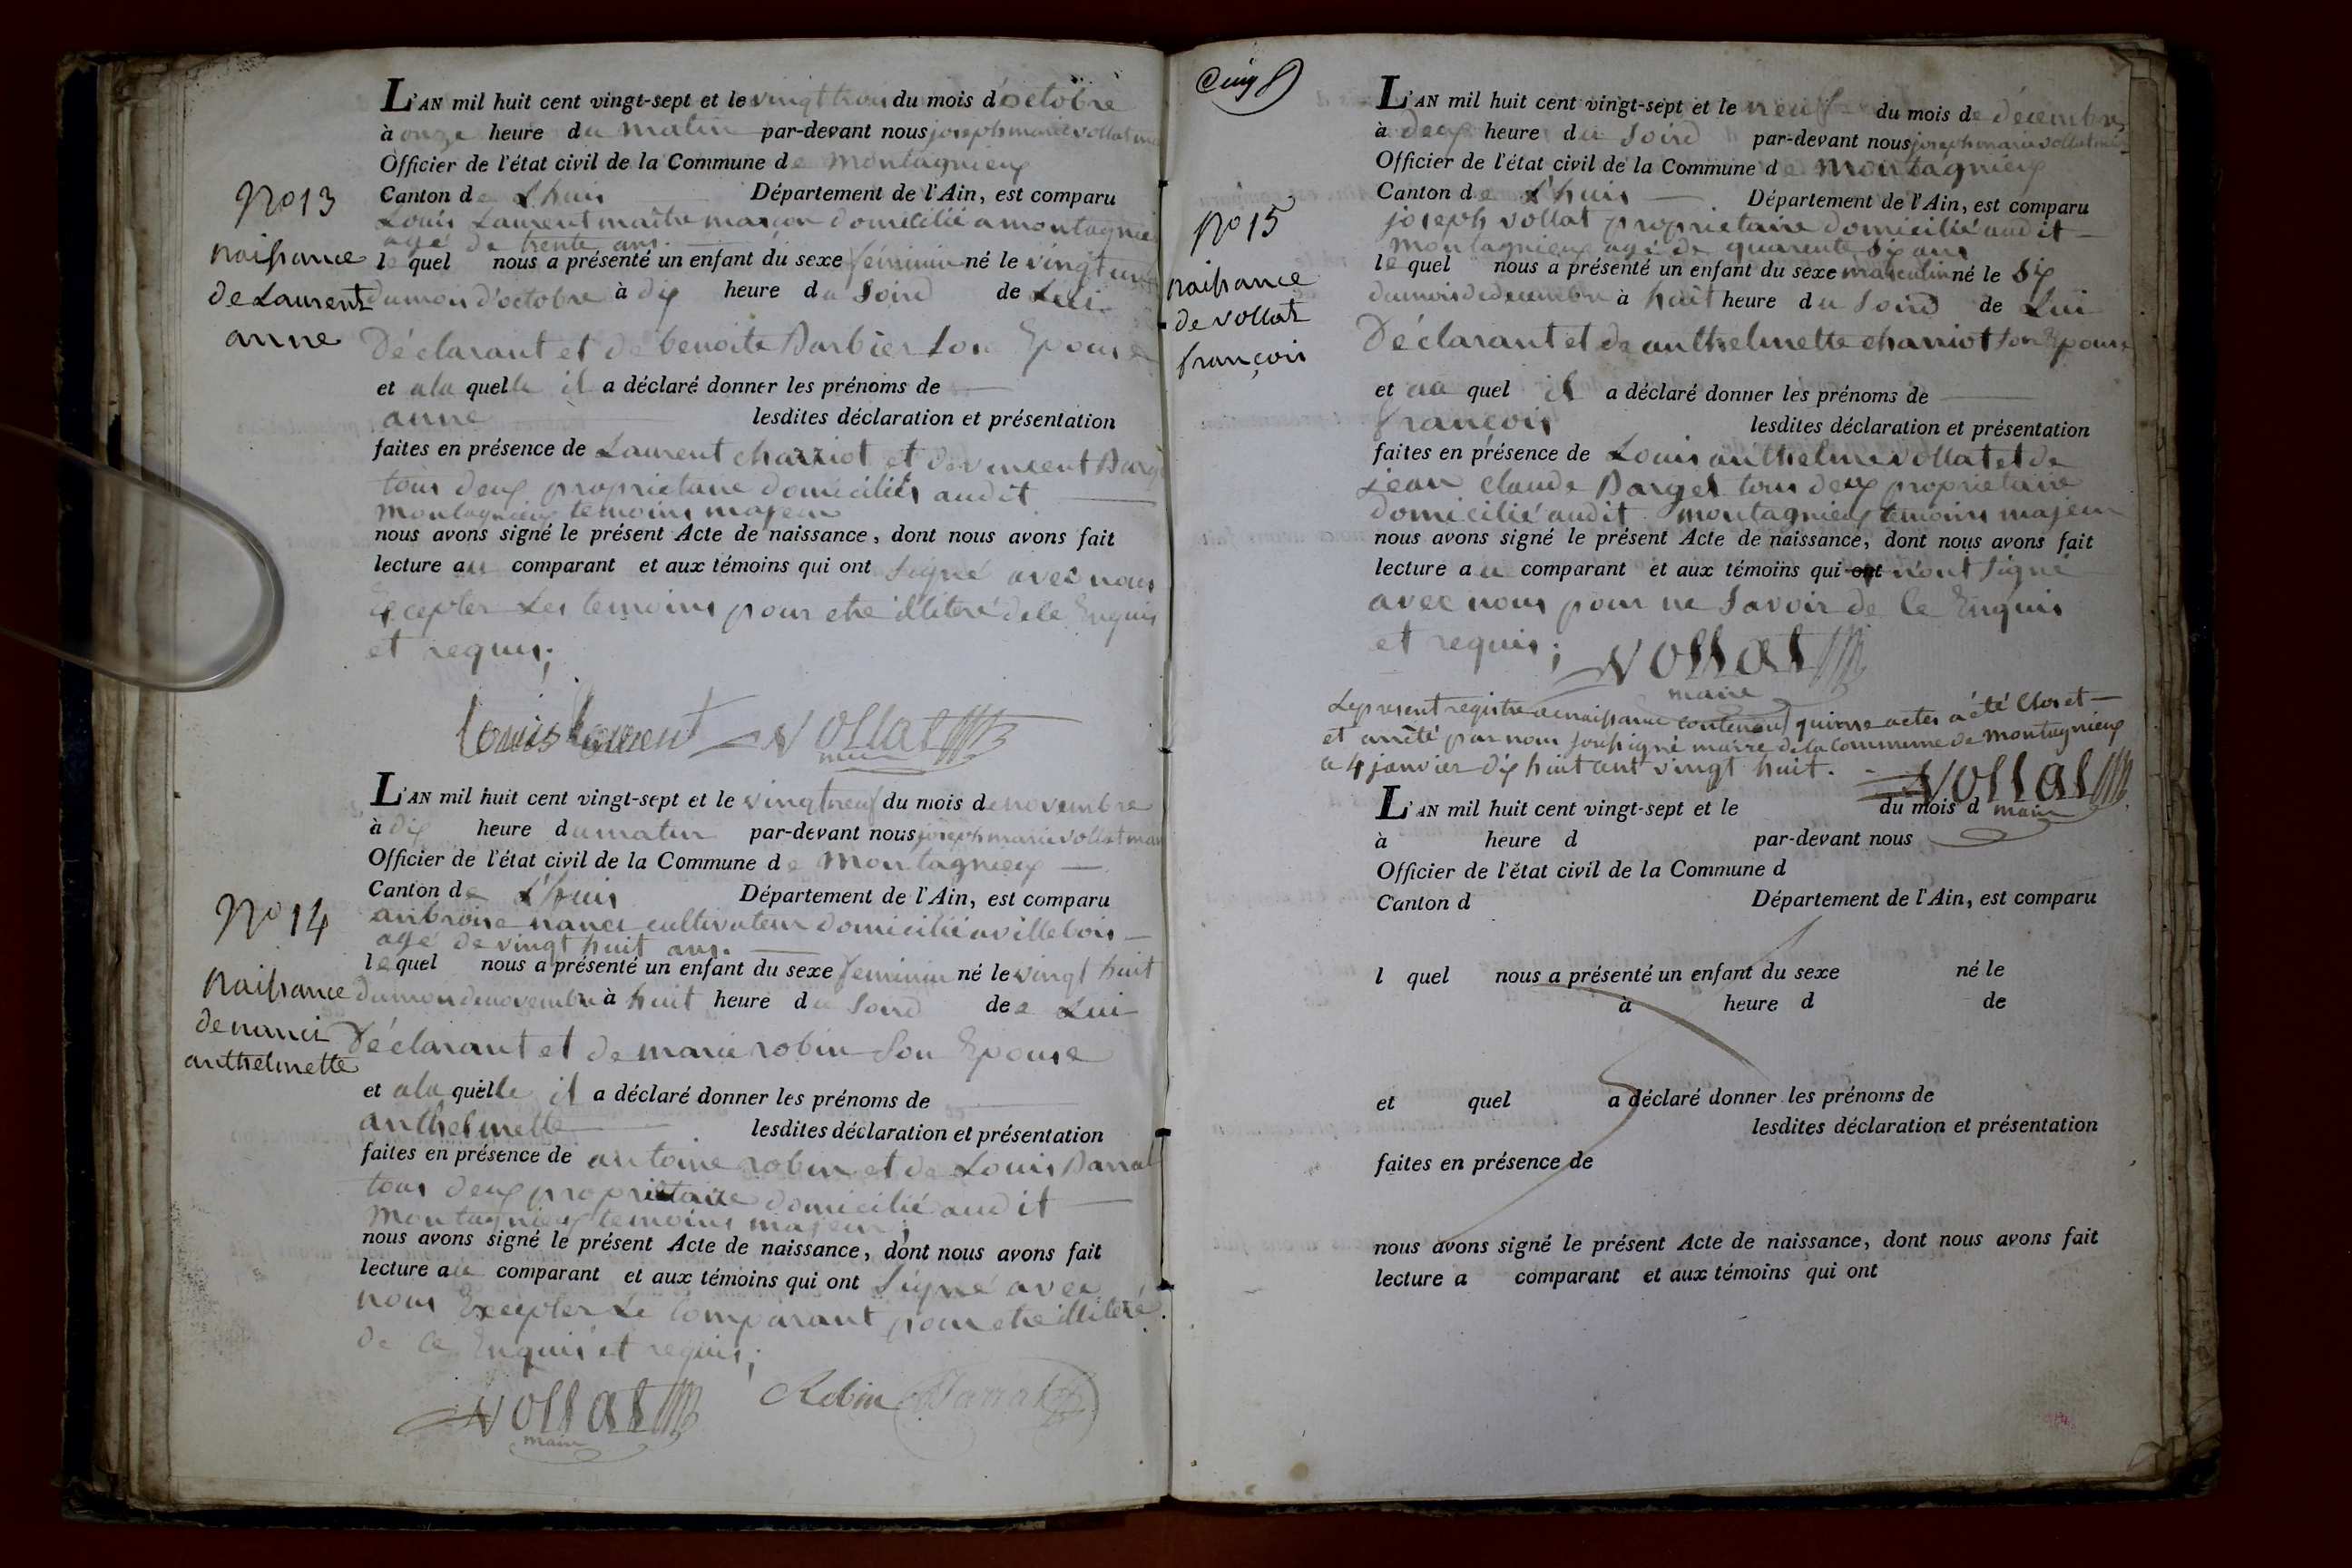 L'AN mil huit cent vingt-sept et le vingt trois du mois d'octobre
à onze heure du matin par-devant nous joseph marie vollat
Officier de l'état civil de la Commune de montagnieux
Canton de L'huis Département de l'Ain, est comparu
Louis Laurent maitre maçon domicilié a montagnieu
agé de trente ans.
No 13
naissance
de Laurent
anne
lequel nous a présenté un enfant du sexe féminin né le vingt un
du mois d'octobre à dix heure du soird de Lui
Déclarant et de benoite Barbier son Epouse
et a la quelle il a déclaré donner les prénoms de
anne lesdites déclaration et présentation
faites en présence de Laurent charriot et de vincent
tous deux proprietaire domiciliés audit
montagnieux temoins majeur
nous avons signé le présent Acte de naissance, dont nous avons fait
lecture au comparant et aux témoins qui ont signé avec nous
Excepter Les temoins pour etre illiteré de ce Enquis
et requis;
Louis Laurent Vollat
maire
L'AN mil huit cent vingt-sept et le vingt neuf du mois de novembre
à dix heure du matin par-devant nous joseph marie vollat
Officier de l'état civil de la Commune de montagnieux
Canton de L'huis Département de l'Ain, est comparu
No 14
naissance
de nanci
anthelmette
anbroise nanci cultivateur domicilié a villebois
agé de vingt huit ans.
lequel nous a présenté un enfant du sexe feminin né le vingt huit
du mois de novembre à huit heure du soird de Lui
Déclarant et de marie robin son Epouse
et a la quelle il a déclaré donner les prénoms de
anthelmette lesdites déclaration et présentation
faites en présence de antoine robin et de Louis
tous deux proprietaire domicilié audit
montagnieux temoins majeur;
nous avons signé le présent Acte de naissance, dont nous avons fait
lecture au comparant et aux témoins qui ont signé avec
nous Excepter Le comparant pour etre illiteré
de ce Enquis et requis;
Vollat Robin
maire
L'AN mil huit cent vingt-sept et le neuf du mois de décembre
à deux heure du soird par-devant nous joseph marie vollat
Officier de l'état civil de la Commune de montagnieux
Canton de L'huis Département de l'Ain, est comparu
No 15
naissance
de vollat
françois
joseph vollat proprietaire domicilié audit
montagnieux agé de quarente six ans
lequel nous a présenté un enfant du sexe masculin né le six
du mois de decembre à huit heure du soird de Lui
Déclarant et de anthelmette charriot son Epouse
et au quel il a déclaré donner les prénoms de
françois lesdites déclaration et présentation
faites en présence de Louis anthelme vollat et de
jean claude Barget tous deux proprietaire
domicilié audit montagnieux temoins majeur
nous avons signé le présent Acte de naissance, dont nous avons fait
lecture au comparant et aux témoins qui ont n'ont signé
avec nous pour ne savoir de ce Enquis
et requis; Vollat
maire
Le present registre de naissance contenant quinze actes a été Clos et
et arrêté par nous soussigné maire de la commune de montagnieux
a 4 janvier dix huit cent vingt huit. Vollat
maire
L'AN mil huit cent vingt-sept et le du mois d
à heure d par-devant nous
Officier de l'état civil de la Commune d
Canton d Département de l'Ain, est comparu
l quel nous a présenté un enfant du sexe né le
à heure d de
et quel a déclaré donner les prénoms de
lesdites déclaration et présentation
faites en présence de
nous avons signé le présent Acte de naissance, dont nous avons fait
lecture a comparant et aux témoins qui ont